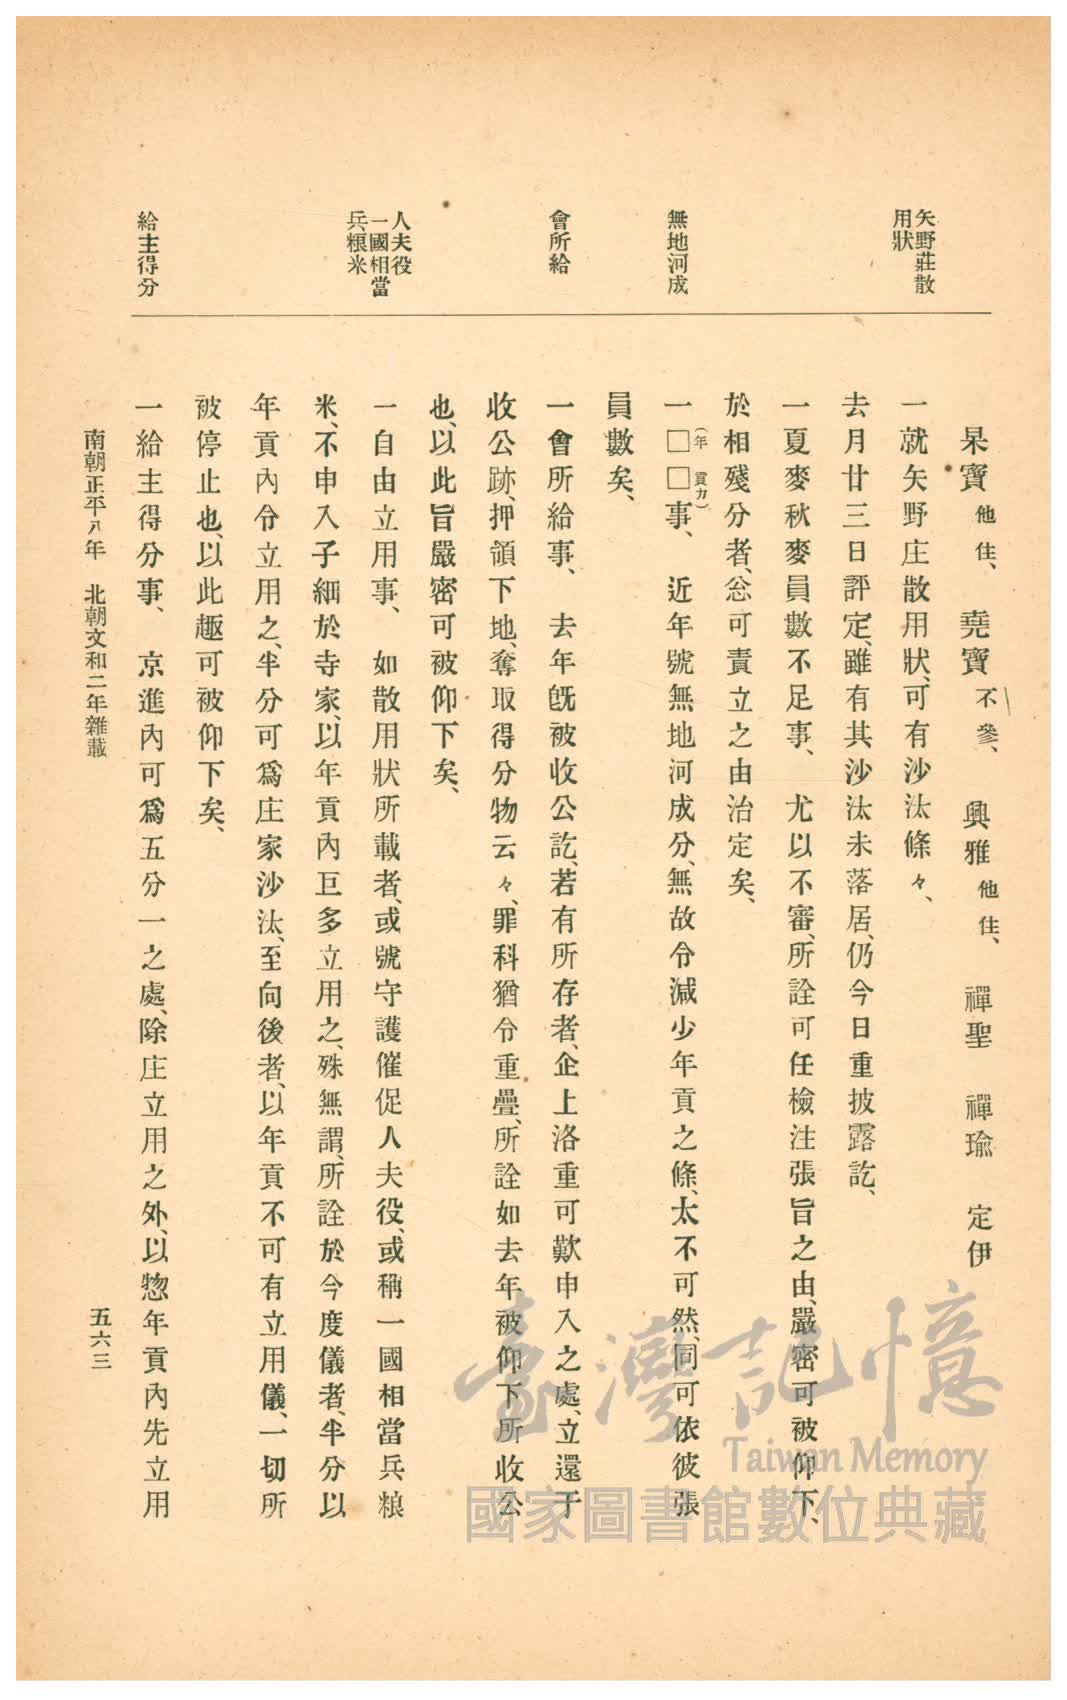 矢野莊散
用狀
無地河成
會所給
人夫役
一國相當
兵粮米
給主得分
杲寶他住、 堯寶不參、 興雅他住、 禪聖 禪瑜 定伊
一就矢野庄散用狀、可有沙汰條々、
去月廿三日評定、雖有其沙汰未落居、仍今日重披露訖、
一夏麥秋麥員數不足事、 尤以不審、所詮可任檢注張旨之由、嚴密可被仰下、
於相殘分者、忩可責立之由治定矣、
一□□(年貢力)事、 近年號無地河成分、無故令減少年貢之條、太不可然、同可依彼張
員數矣、
一會所給事、 去年旣被收公訖、若有所存者、企上洛重可歎申入之處、立還于
收公跡、押領下地、奪取得分物云々、罪科猶令重疊、所詮如去年被仰下所收公
也、以此旨嚴密可被仰下矣、
一自由立用事、 如散用狀所載者、或號守護催促人夫役、或稱一國相當兵粮
米、不申入子細於寺家、以年貢內巨多立用之、殊無謂、所詮於今度儀者、半分以
年貢內令立用之、半分可爲庄家沙汰、至向後者、以年貢不可有立用儀、一切所
被停止也、以此趣可被仰下矣、
一給主得分事、 京進內可爲五分一之處、除庄立用之外、以惣年貢內先立用
南朝正平八年 北朝文和二年雜載
五六三
臺灣記憶
Taiwan Memory
國家圖書館數位典藏